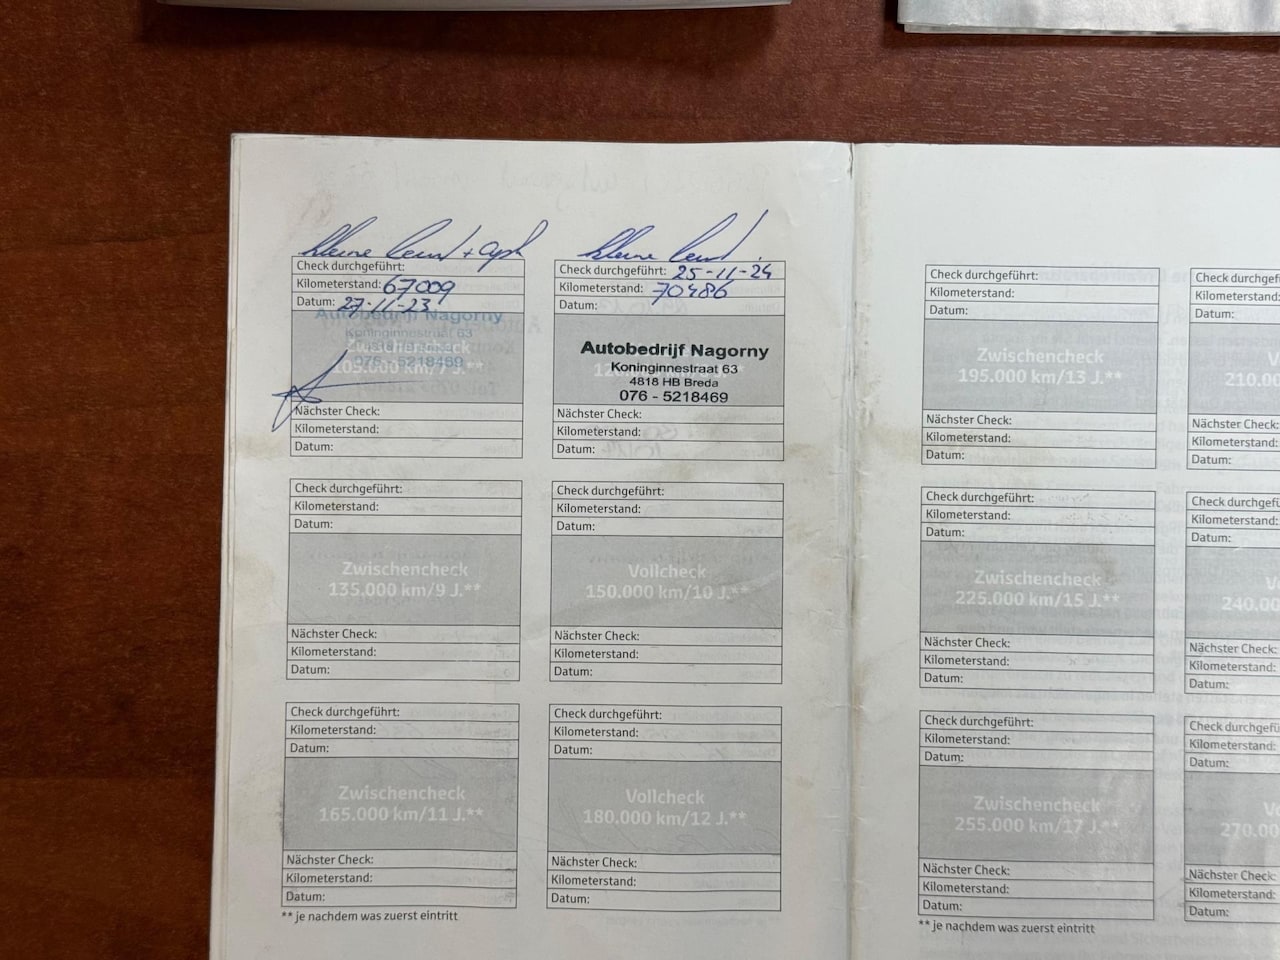 kleine beurt + apk
Check durchgeführt:
Kilometerstand: 67009
Datum: 27-11-23
Autobedrijf Nagorny
Koninginnestraat 63
Zwischencheck
076 - 5218469
105.000 km/7 J.**
Nächster Check:
Kilometerstand:
Datum:
kleine beurt
Check durchgeführt: 25-11-24
Kilometerstand: 70486
Datum:
Autobedrijf Nagorny
Koninginnestraat 63
4818 HB Breda
076 - 5218469
Nächster Check:
Kilometerstand:
Datum:
Check durchgeführt:
Kilometerstand:
Datum:
Zwischencheck
135.000 km/9 J.**
Nächster Check:
Kilometerstand:
Datum:
Check durchgeführt:
Kilometerstand:
Datum:
Vollcheck
150.000 km/10 J.**
Nächster Check:
Kilometerstand:
Datum:
Check durchgeführt:
Kilometerstand:
Datum:
Zwischencheck
165.000 km/11 J.**
Nächster Check:
Kilometerstand:
Datum:
Check durchgeführt:
Kilometerstand:
Datum:
Vollcheck
180.000 km/12 J.**
Nächster Check:
Kilometerstand:
Datum:
** je nachdem was zuerst eintritt
Check durchgeführt:
Kilometerstand:
Datum:
Zwischencheck
195.000 km/13 J.**
Nächster Check:
Kilometerstand:
Datum:
Check durchgefü
Kilometerstand:
Datum:
V
210.00
Nächster Check:
Kilometerstand:
Datum:
Check durchgeführt:
Kilometerstand:
Datum:
Zwischencheck
225.000 km/15 J.**
Nächster Check:
Kilometerstand:
Datum:
Check durchgefü
Kilometerstand:
Datum:
V
240.00
Nächster Check:
Kilometerstand:
Datum:
Check durchgeführt:
Kilometerstand:
Datum:
Zwischencheck
255.000 km/17 J.**
Nächster Check:
Kilometerstand:
Datum:
Check durchgefü
Kilometerstand:
Datum:
V
270.00
Nächster Check:
Kilometerstand:
Datum:
** je nachdem was zuerst eintritt